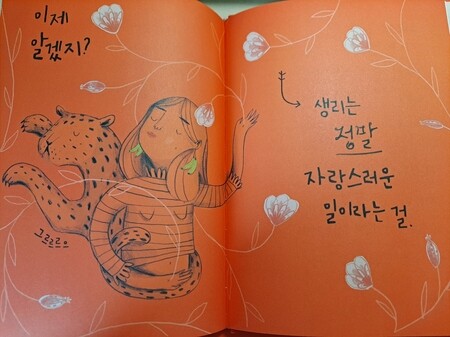 이제
알겠지?
그르르으
생리는
정말
자랑스러운
일이라는 걸.